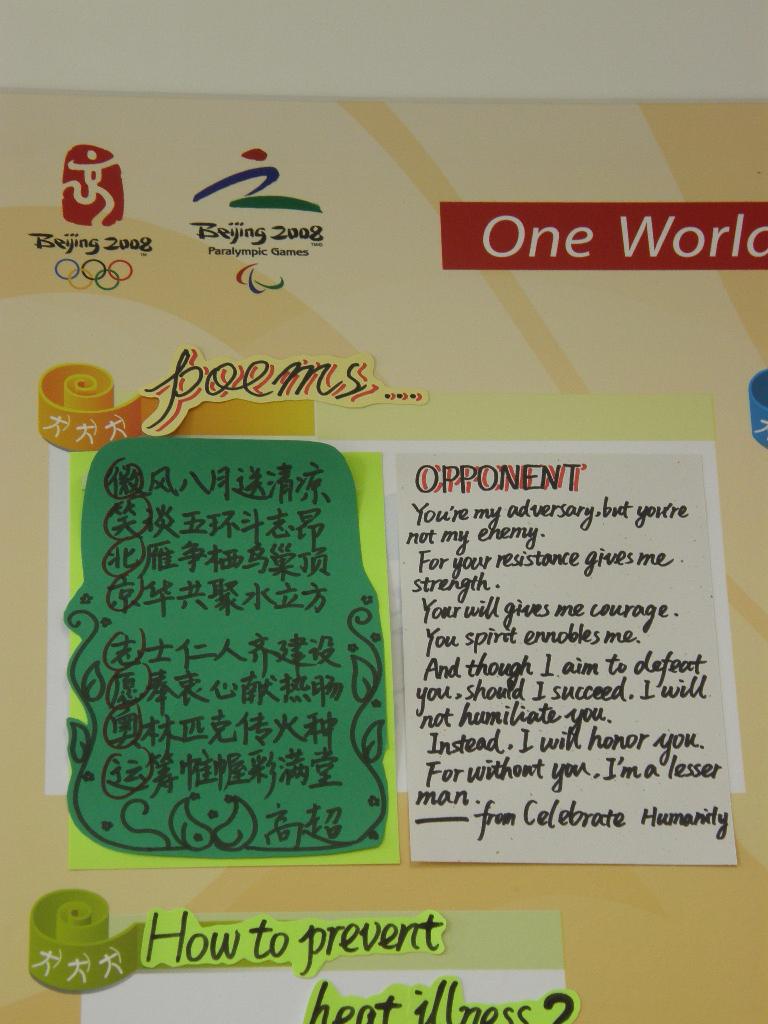 Beijing 2008™
Beijing 2008™
Paralympic Games
One World
poems....
微风八月送清凉
笑谈五环斗志昂
北雁争栖鸟巢顶
京华共聚水立方
志士仁人齐建设
愿奉衷心献热肠
奥林匹克传火种
运筹帷幄彩满堂
高超
OPPONENT
You're my adversary, but you're
not my enemy.
For your resistance gives me
strength.
Your will gives me courage.
You spirit ennobles me.
And though I aim to defeat
you, should I succeed, I will
not humiliate you.
Instead, I will honor you.
For without you, I'm a lesser
man.
—— from Celebrate Humanity
How to prevent
heat illness?